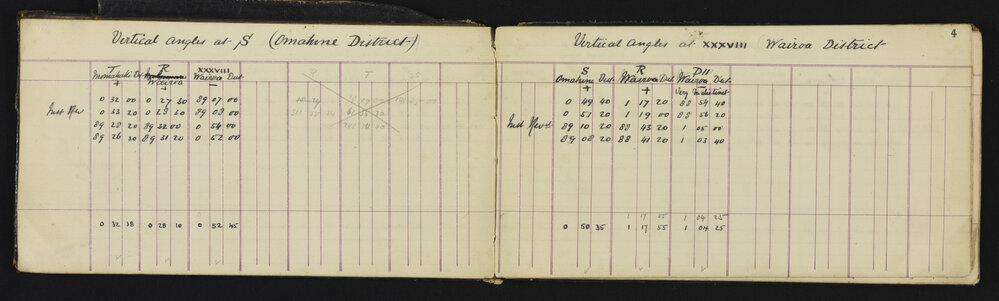 Vertical Angles at S (Omahine District)
T R XXXVIII
Momahaki Dist Wairoa Wairoa Dist
+ + –
0 32 00 0 27 50 89 07 00
Inst Rev 0 33 20 0 28 30 89 08 00
89 28 20 89 32 00 0 54 00
89 26 30 89 31 20 0 52 00
0 32 38 0 28 10 0 52 45
4
Vertical Angles at XXXVIII (Wairoa District
S R D11
Omahine Dist Wairoa Dist Wairoa Dist
+ + –
Very Indistinct
0 49 40 1 17 20 88 54 40
0 51 20 1 19 00 88 56 20
Inst Rev 89 10 20 88 43 20 1 05 00
89 08 20 88 41 20 1 03 40
1 17 55 1 04 25
0 50 35 1 17 55 1 04 25